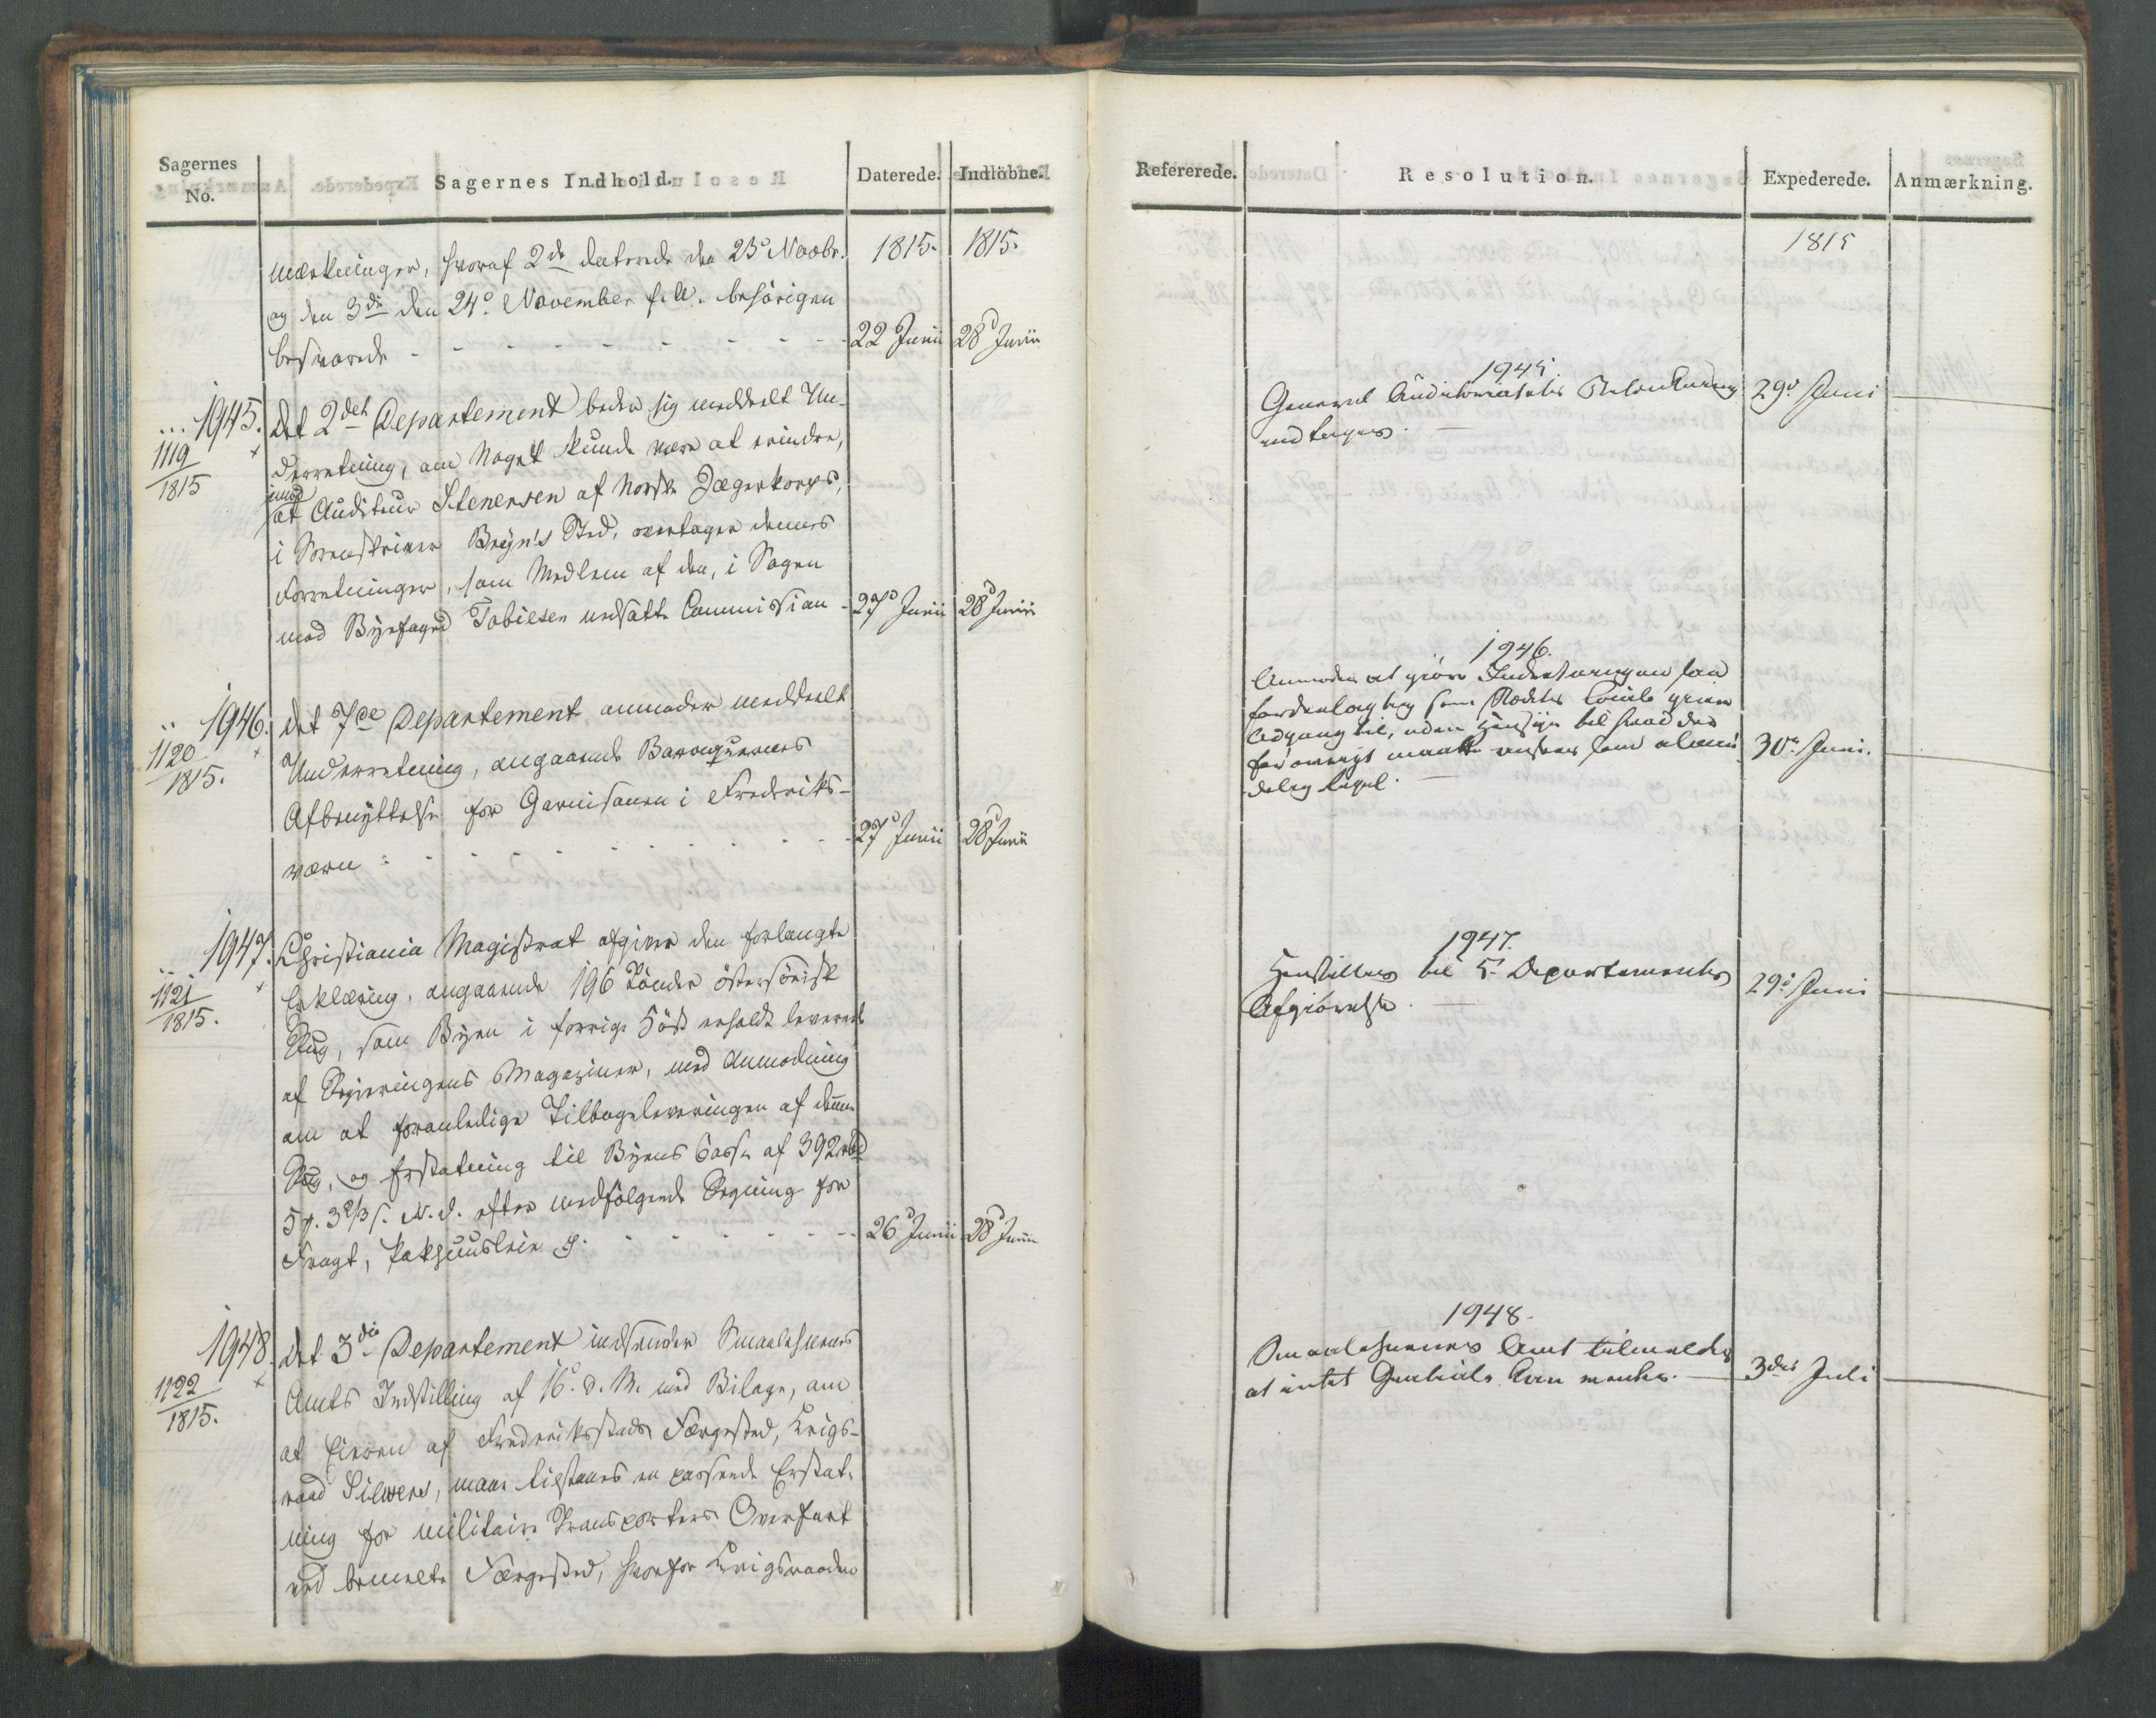 Sagernes
No.
Sagernes Indhold.
Daterede.
Indløbne.
1815.
1815.
mærkninger, hvoraf 2de daterede den 23de Novbr.
og den 3die den 24de November f. A. behörigen
besvarede
22 Junii
28d Junii
1945.
1119
1815
Det 2det Departement beder sig meddeelt Un-
derretning, om Noget kunde være at erindre,
imod
at Auditeur Stenersen af Norske Jægerkorps,
i Sorenskriver Bryn's Sted, overtager dennes
Forretninger, som Medlem af den, i Sagen
mod Byefoged Tobiesen nedsatte Commission
27d Junii
28d Junii
1946.
1120
1815.
Det 7de Departement anmoder meddeelt
Underretning, angaaende Baraquernes
Afbenyttelse for Garnisonen i Frederiks-
værn
27d Junii
28d Junii
1947.
1121
1815.
Christiania Magistrat afgiver den forlangte
Erklæring, angaaende 196 Tönder östersöisk
Rug, som Byen i forrige Höst erholdt leveret
af Regjeringens Magaziner, med Anmodning
om at foranledige Tilbageleveringen af denne
Rug, og Erstatning til Byens Casse af 392 rbd
5 . 3 2/3 s. N. V. efter medfölgende Regning for
Fragt, Pakhuusleie &.
26d Junii
28d Junii
1948.
1122
1815.
Det 3die Departement indsender Smaalehnenes
Amts Indstilling af 16de d. M. med Bilage, om
at Eieren af Frederiksstads Færgested, Krigs-
raad Sievers, maae tilstaaes en passende Erstat-
ning for militaire Transporters Overfart
ved bemelte Færgested, hvorfor Krigsraaden
Refererede.
Resolution.
Expederede.
Anmærkning.
1815
1945.
General Auditoriatets Betænkning
indtages.
29de Juni
1946.
Anmodes at gjöre Indretningen saa
fordeelagtig som Stedets Locale giver
Adgang til, uden Hensyn til hvad der
for övrigt maatte ansees som almin-
delig Regel.
30te Juni.
1947.
Henstilles til 5te Departements
Afgiörelse.
29de Juni
1948.
Smaalehnenes Amt tilmeldes
at intet Genhiels kan ventes.
3die Juli